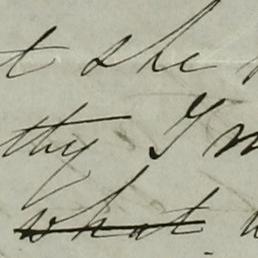 t she
thy I
what